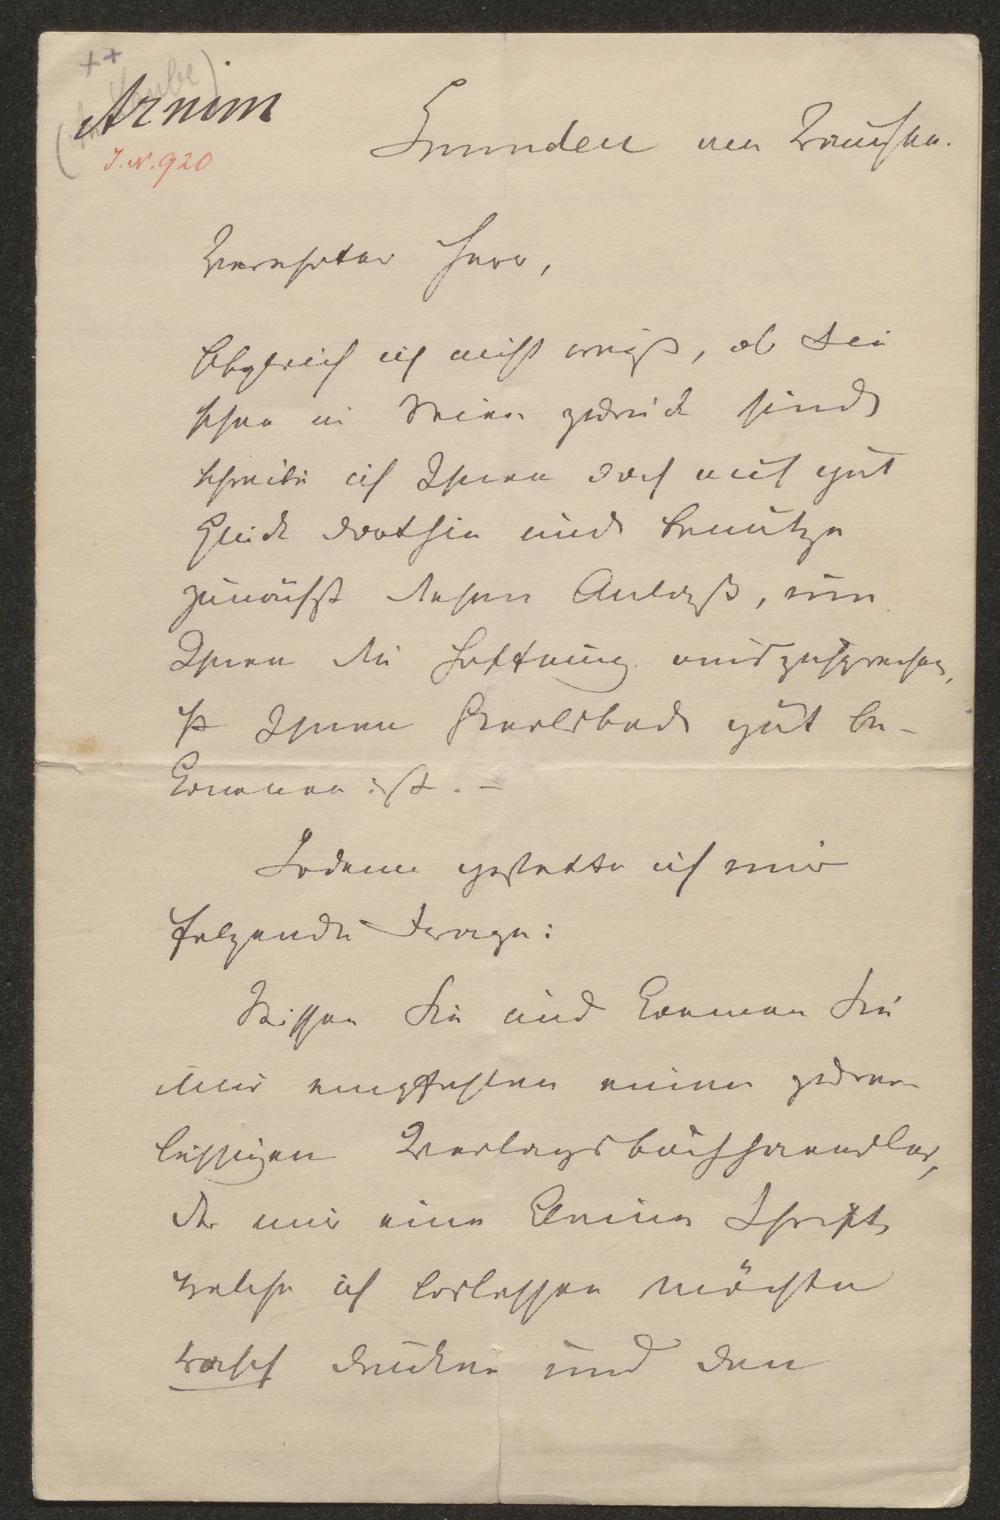 ++
(An Laube)
Arnim
J. N. 920
Gmunden am Traunsee.
Verehrter Herr,
Obgleich ich nicht weiß, ob Sie
schon in Wien zurück sind
schreibe ich Ihnen doch auf gut
Glück dorthin und benutze
zunächst diesen Anlaß, um
Ihnen die Hoffnung auszusprechen,
Ihnen Karlsbad gut be-
kommen ist. –
Sodann gestatte ich mir
folgende Frage:
Wissen Sie und können Sie
mir empfehlen einen zuver-
lässigen Verlagsbuchhaendler,
der mir eine kleine Schrift,
welche ich loslassen möchte
rasch drucken und den